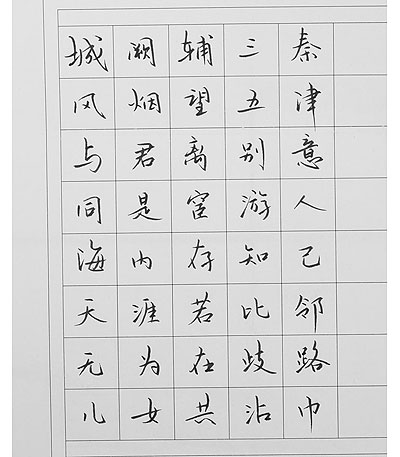 城阙辅三秦
风烟望五津
与君离别意
同是宦游人
海内存知己
天涯若比邻
无为在歧路
儿女共沾巾